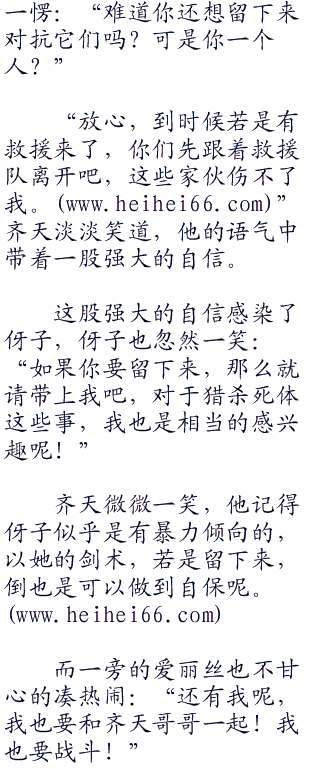 一愣：“难道你还想留下来
对抗它们吗？可是你一个
人？”
“放心，到时候若是有
救援来了，你们先跟着救援
队离开吧，这些家伙伤不了
我。(www.heihei66.com)”
齐天淡淡笑道，他的语气中
带着一股强大的自信。
这股强大的自信感染了
伢子，伢子也忽然一笑：
“如果你要留下来，那么就
请带上我吧，对于猎杀死体
这些事，我也是相当的感兴
趣呢！”
齐天微微一笑，他记得
伢子似乎是有暴力倾向的，
以她的剑术，若是留下来，
倒也是可以做到自保呢。
(www.heihei66.com)
而一旁的爱丽丝也不甘
心的凑热闹：“还有我呢，
我也要和齐天哥哥一起！我
也要战斗！”